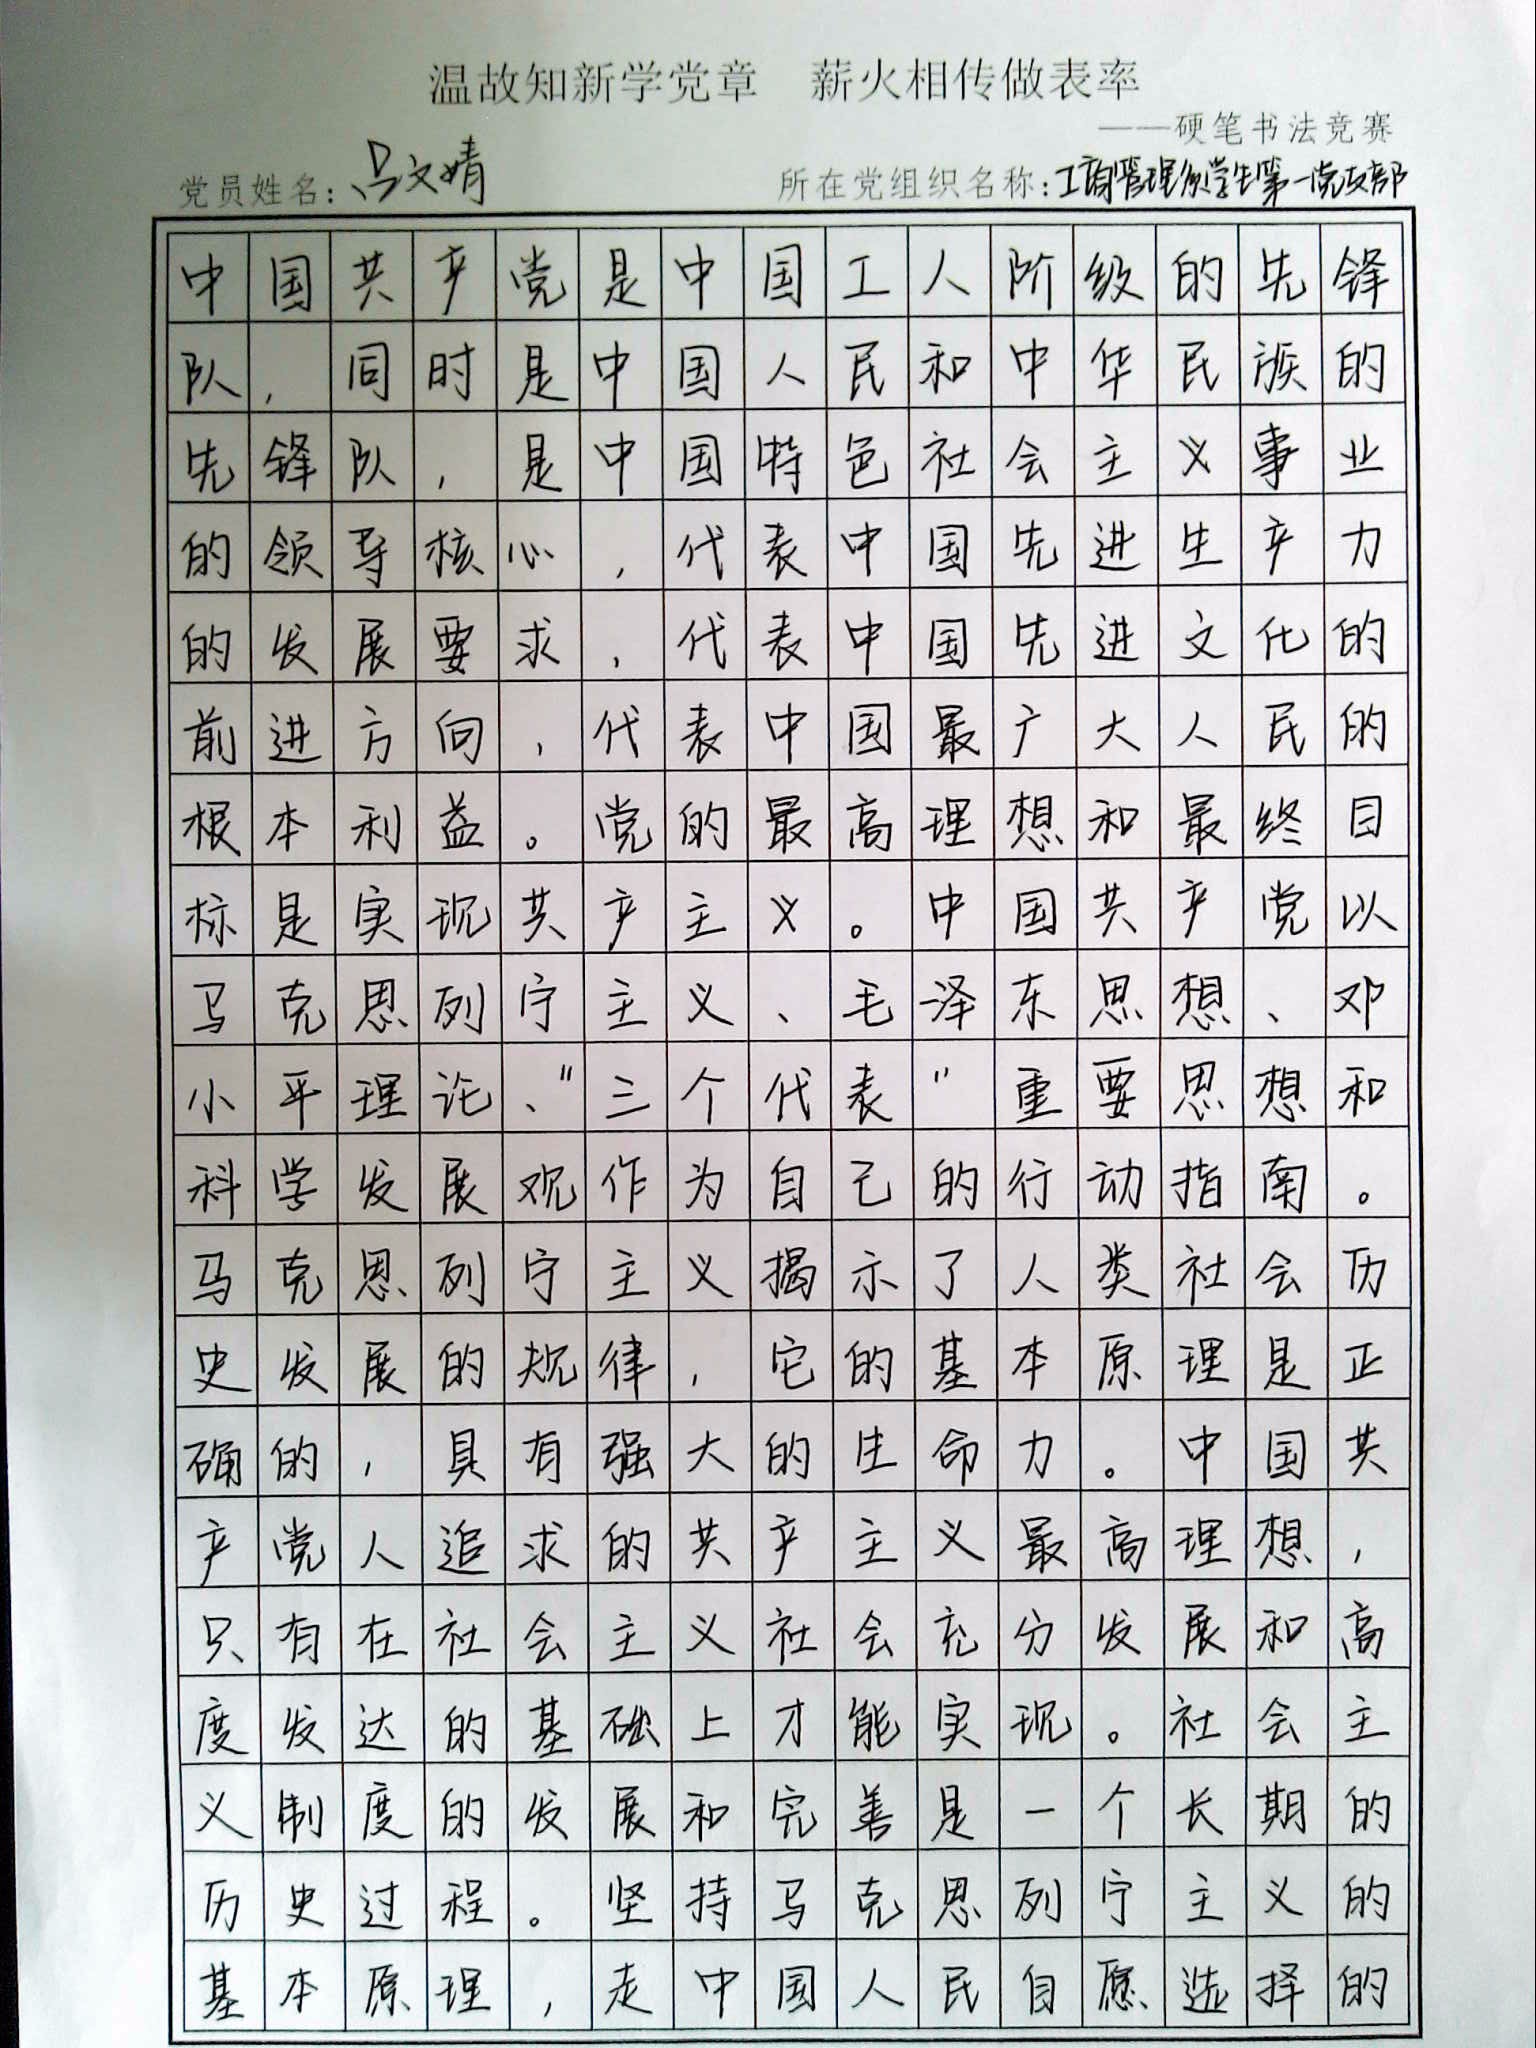 温故知新学党章 薪火相传做表率
——硬笔书法竞赛
党员姓名：吕文婧 所在党组织名称：工商管理系学生第一党支部
中国共产党是中国工人阶级的先锋
队，同时是中国人民和中华民族的
先锋队，是中国特色社会主义事业
的领导核心，代表中国先进生产力
的发展要求，代表中国先进文化的
前进方向，代表中国最广大人民的
根本利益。党的最高理想和最终目
标是实现共产主义。中国共产党以
马克思列宁主义、毛泽东思想、邓
小平理论、“三个代表”重要思想和
科学发展观作为自己的行动指南。
马克思列宁主义揭示了人类社会历
史发展的规律，它的基本原理是正
确的，具有强大的生命力。中国共
产党人追求的共产主义最高理想，
只有在社会主义社会充分发展和高
度发达的基础上才能实现。社会主
义制度的发展和完善是一个长期的
历史过程。坚持马克思列宁主义的
基本原理，走中国人民自愿选择的